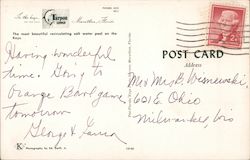 In the keys
Tarpon
LODGE
Marathon, Florida
The most beautiful recirculating salt water pool on the Keys
Having wonderful
time. Going to
Orange Bowl game
tomorrow
George &
POST CARD
Address
Mr & Mrs B. Wisniewski
601 E. Ohio
Milwaukee, Wis
K